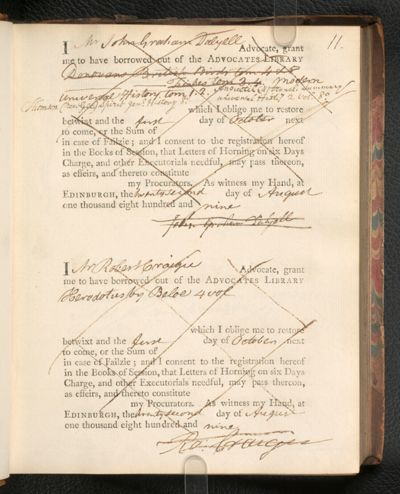 11.
I Mr John Graham Dalyell Advocate, grant
me to have borrowed out of the ADVOCATES LIBRARY
Donovans British Birds tom
modern
universal History tom 1. 2.
which I oblige me to restore
betwixt and the first day of October next
to come, or the Sum of
in case of Failzie; and I consent to the registration hereof
in the Books of Session, that Letters of Horning on six Days
Charge, and other Executorials needful, may pass thereon,
as effeirs, and thereto constitute
my Procurators. As witness my Hand, at
EDINBURGH, the twenty second day of August
one thousand eight hundred and nine
John Graham Dalyell
I Mr Robert Craigie Advocate, grant
me to have borrowed out of the ADVOCATES LIBRARY
Herodotus by Beloe 4 vol
which I oblige me to restore
betwixt and the first day of October next
to come, or the Sum of
in case of Failzie; and I consent to the registration hereof
in the Books of Session, that Letters of Horning on six Days
Charge, and other Executorials needful, may pass thereon,
as effeirs, and thereto constitute
my Procurators. As witness my Hand, at
EDINBURGH, the twenty second day of August
one thousand eight hundred and nine
Ro. Craigie